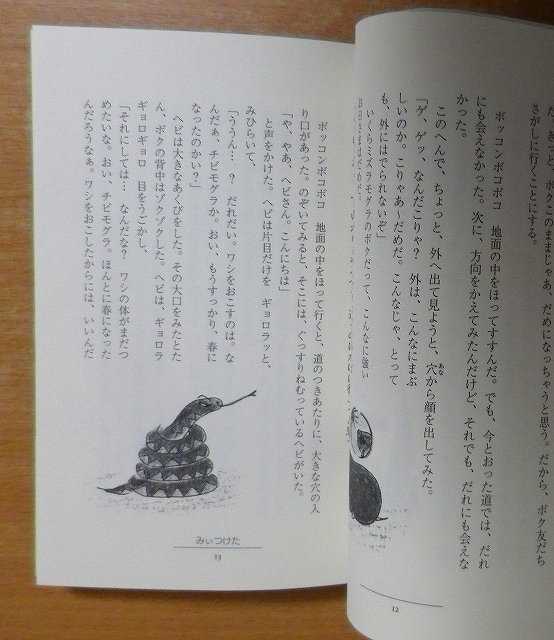 ボクはこのままじゃあ、だめになっちゃうと思う。だから、ボク友だち
さがしに行くことにする。
ボッコンボコボコ　地面の中をほってすすんだ。でも、今とおった道では、だれ
にも会えなかった。次に、方向をかえてみたんだけど、それでも、だれにも会えな
かった。
このへんで、ちょっと、外へ出て見ようと、穴から顔を出してみた。
あな
「ゲ、ゲッ、なんだこりゃ？　外は、こんなにまぶ
しいのか。こりゃあ〜だめだ。こんなじゃ、とって
も、外にはでられないぞ」
いくらミズラモグラのボクだって、こんなに強い
12
ボッコンボコボコ　地面の中をほって行くと、道のつきあたりに、大きな穴の入
り口があった。のぞいてみると、そこには、ぐっすりねむっているヘビがいた。
「や、やあ、ヘビさん。こんにちは」
と声をかけた。ヘビは片目だけを　ギョロラッと、
みひらいて、
「ううん…　？　だれだい。ワシをおこすのは。な
んだぁ、チビモグラか。おい、もうすっかり、春に
なったのかい？」
ヘビは大きなあくびをした。その大口をみたとた
ん、ボクの背中はゾクゾクした。ヘビは、ギョロラ
ギョロギョロ　目をうごかし、
「それにしては…　なんだな？　ワシの体がまだつ
めたいな。おい、チビモグラ。ほんとに春になった
んだろうなぁ。ワシをおこしたからには、いいんだ
みぃつけた
13